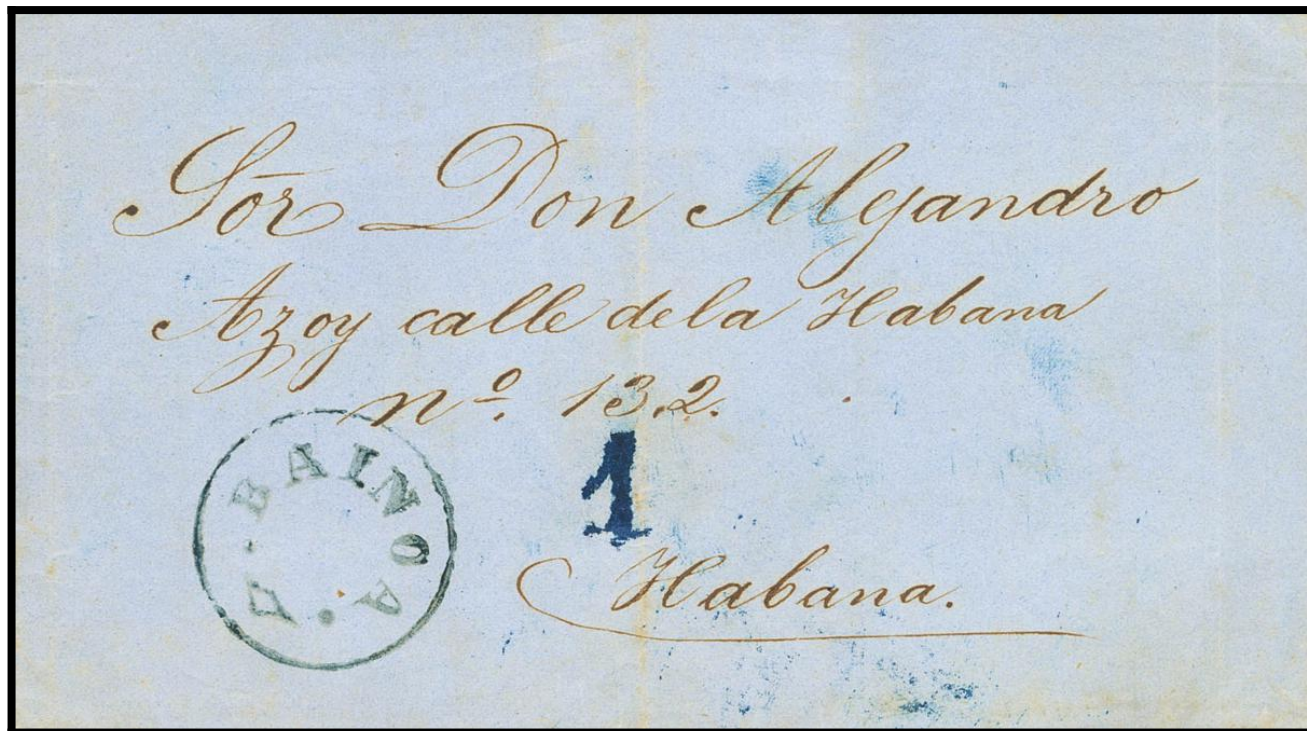 Sōr Don Alejandro
Azoy calle de la Habana
nº. 132.
BAINOA
1
Habana.